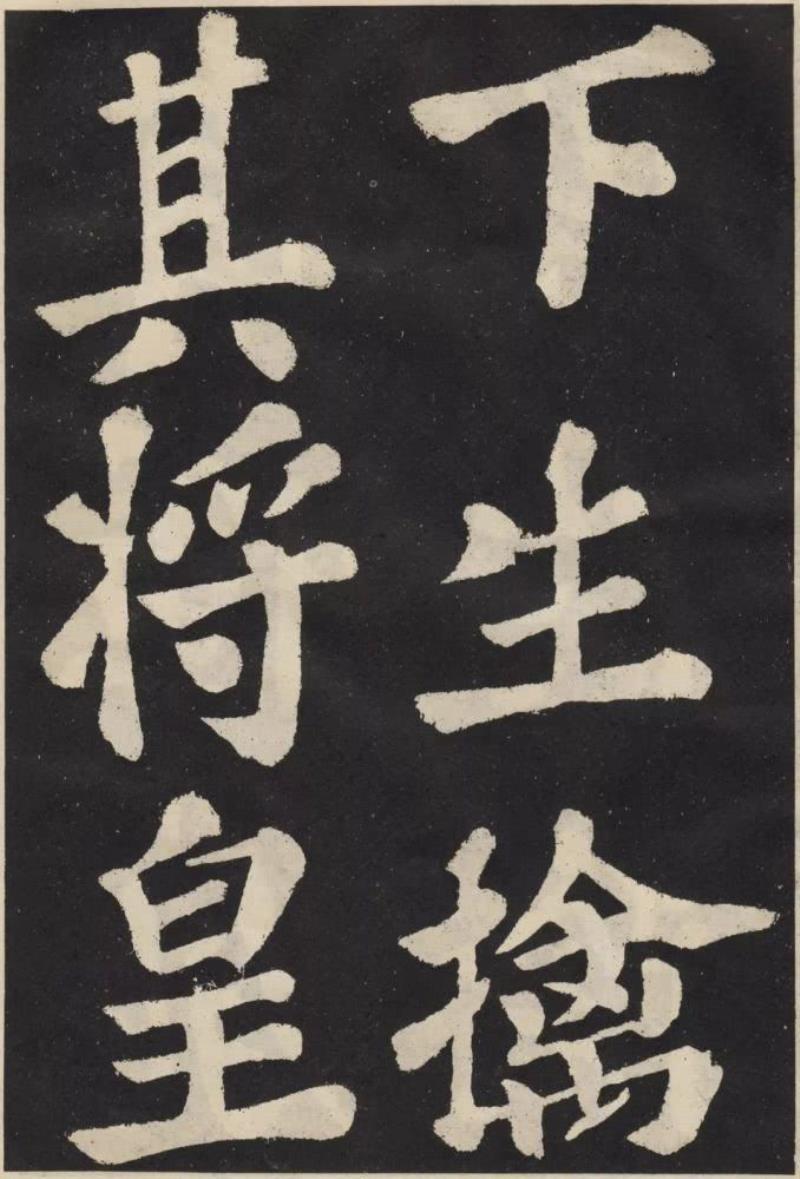 下生擒
其将皇